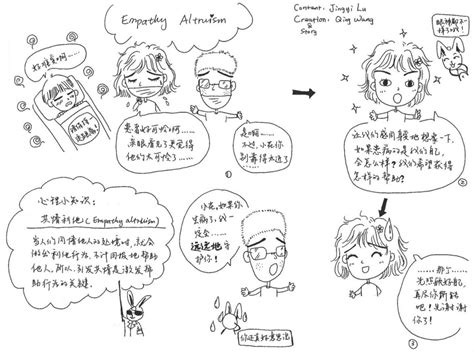 Empathy Altruism
Content: Jingyi Lu
Creation: Qing Wang
&
Story
好难受啊……
患者好可怜啊……
亲眼看见更觉得
他们太可怜了……
是啊……
不过,小花你
别靠得太近了
①
眼神都不一
样了哎!
让我们感同身受地想一下,
如果患病的是我们自己,
会怎么样?我们希望获得
怎样的帮助?
②
心理小知识:
共情利他 (Empathy altruism)
当人们同情他人的处境时,就会
做出利他行为,不计回报地帮助
他人,所以,引发共情是激发帮
助行为的关键。
小花,如果你
生病了,我一
定会
远远地守
护你!
你还真好意思说
……那
先照顾好自己,
再尽你所能
吧!先谢谢
你了!
③